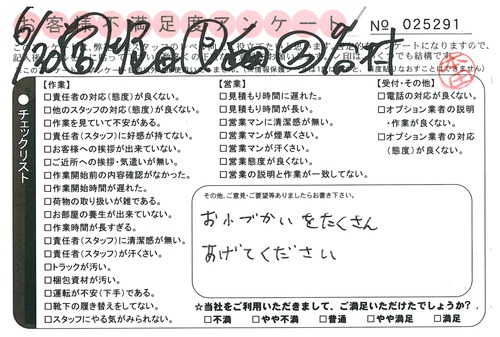 お客様不満足度アンケート
No 025291
チェックリスト
【作業】
□責任者の対応(態度)が良くない。
□他のスタッフの対応(態度)が良くない。
□作業を見ていて不安がある。
□責任者(スタッフ)に好感が持てない。
□お客様への挨拶が出来ていない。
□ご近所への挨拶・気遣いが無い。
□作業開始前の内容確認がなかった。
□作業開始時間が遅れた。
□荷物の取り扱いが雑である。
□お部屋の養生が出来ていない。
□作業時間が長すぎる。
□責任者(スタッフ)に清潔感が無い。
□責任者(スタッフ)が汗くさい。
□トラックが汚い。
□梱包資材が汚い。
□運転が不安(下手)である。
□靴下の履き替えをしてない。
□スタッフにやる気がみられない。
【営業】
□見積もり時間に遅れた。
□見積もり時間が長い。
□営業マンに清潔感が無い。
□営業マンが煙草くさい。
□営業マンが汗くさい。
□営業態度が良くない。
□営業の説明と作業が一致してない。
【受付・その他】
□電話の対応が良くない。
□オプション業者の説明
・作業が良くない。
□オプション業者の対応
(態度)が良くない。
その他、ご意見・ご要望等ありましたらお書き下さい。
お小づかいをたくさん
あげてください
☆当社をご利用いただきまして、ご満足いただけたでしょうか?
□不満 □やや不満 □普通 □やや満足 □満足